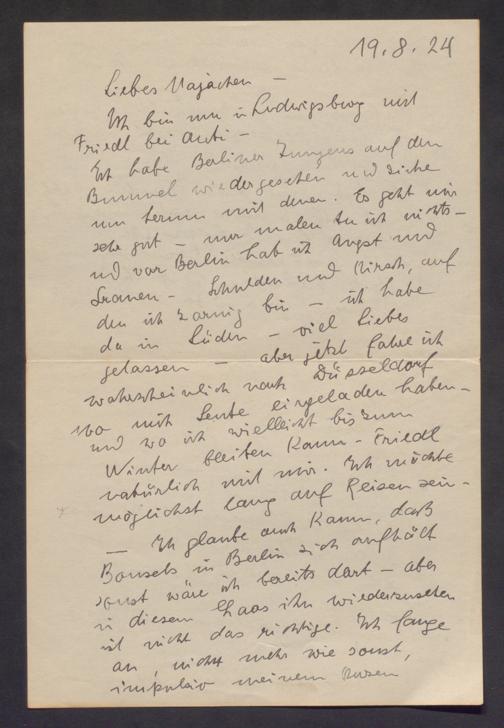 19.8.24
Liebes Majachen —
Ich bin nun in Ludwigsburg mit
Friedl bei Anti —
Ich habe Berliner Jungens auf dem
Bummel wiedergesehen und ziehe
nun herum mit denen. Es geht mir
sehr gut — nur malen tu ich nichts —
und vor Berlin hab ich Angst und
Grauen — Schulden und Kirsch, auf
den ich zornig bin — ich habe
da im Süden — viel Liebes
gelassen — aber jetzt fahre ich
wahrscheinlich nach Düsseldorf
wo mich Leute eingeladen haben —
und wo ich vielleicht bis zum
Winter bleiben kann — Friedl
natürlich mit mir. Ich möchte
möglichst lang auf Reisen sein —
— Ich glaube auch kaum, daß
Bonsels in Berlin sich aufhält
sonst wäre ich bereits dort — aber
in diesem Chaos ihn wiederzusehen
ist nicht das richtige. Ich fange
an, nicht mehr wie sonst,
impulsiv meinem